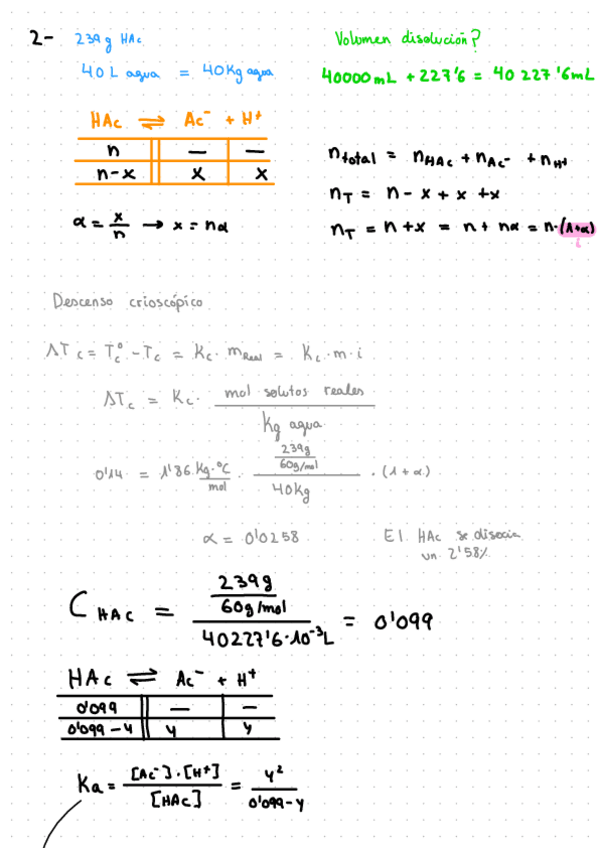 2- 239 g HAc
40 L agua = 40 Kg agua
Volumen disolución?
40000 mL + 227'6 = 40 227'6 mL
HAc ⇌ Ac⁻ + H⁺
n — —
n-x x x
α = x/n → x = nα
n total = n HAc + n Ac⁻ + n H⁺
n T = n - x + x + x
n T = n + x = n + nα = n·(1+α)
i
Descenso crioscópico
ΔTc = Tc° - Tc = Kc · m Real = Kc · m · i
ΔTc = Kc · mol solutos reales / Kg agua
0'14 = 1'86 Kg·°C/mol · (239g / 60g/mol) / 40Kg · (1+α)
α = 0'0258
El HAc se disocia
un 2'58%
C HAc = (239g / 60g/mol) / 40227'6·10⁻³L = 0'099
HAc ⇌ Ac⁻ + H⁺
0'099 — —
0'099 - y y y
Ka = [Ac⁻]·[H⁺] / [HAc] = y² / 0'099-y